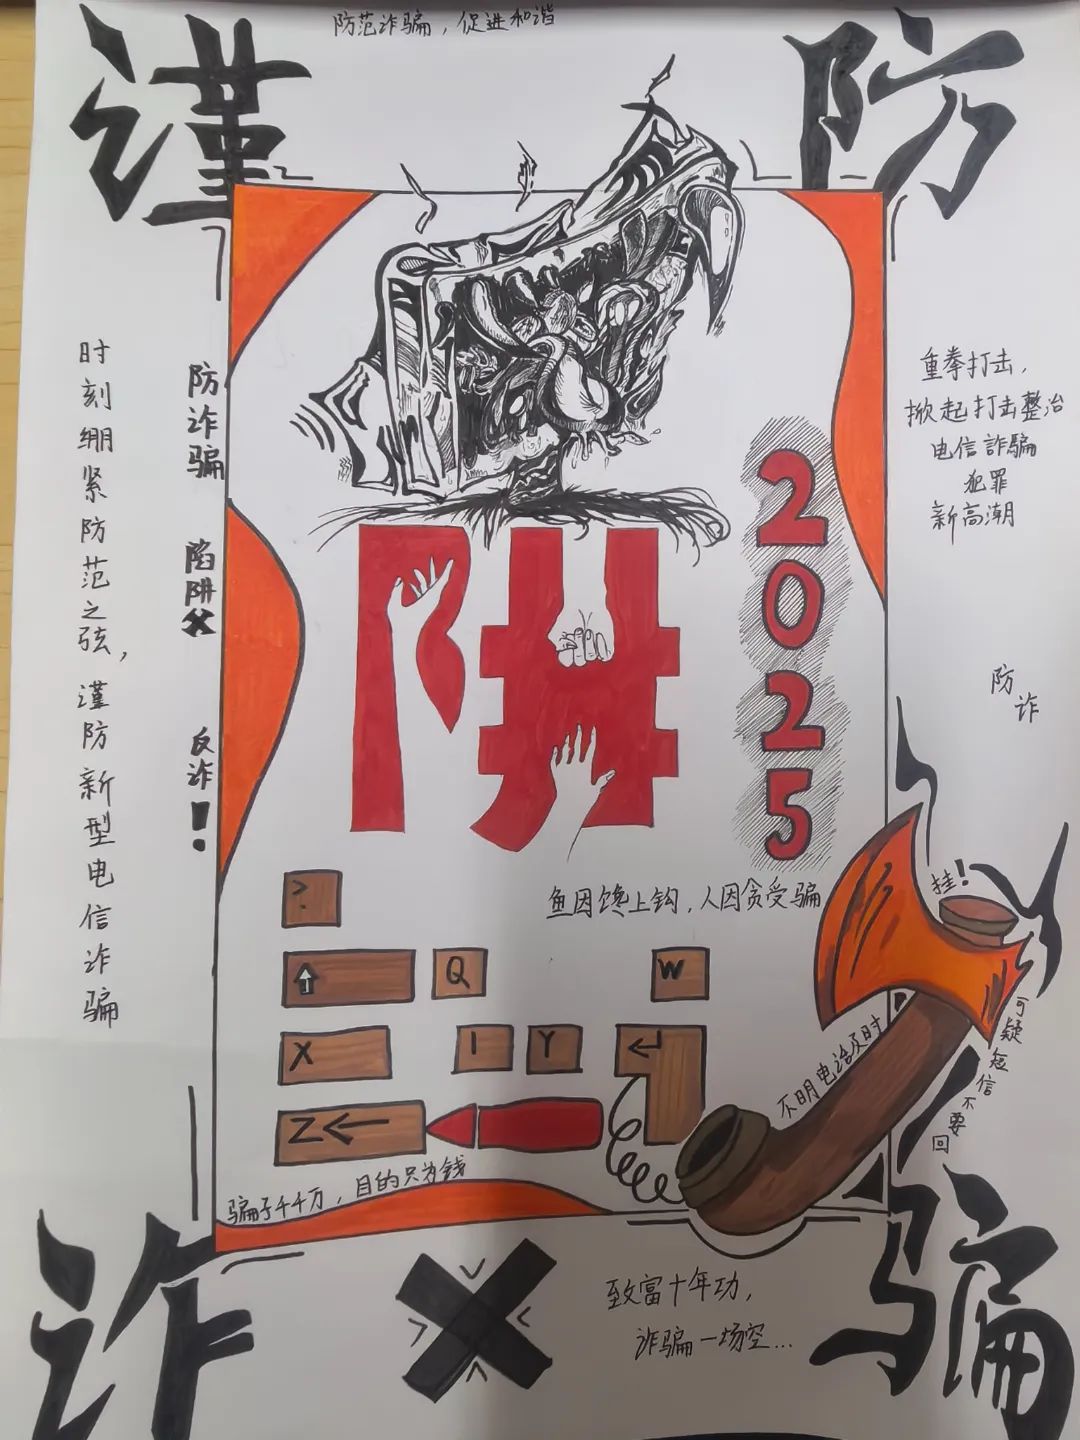 防范诈骗，促进和谐
谨防
诈骗
时刻绷紧防范之弦，谨防新型电信诈骗
防诈骗
陷阱
反诈！
重拳打击，
掀起打击整治
电信詐騙
犯罪
新高潮
防诈
阱
2025
鱼因馋上钩，人因贪受骗
?
Q
W
X
I
Y
Z
挂！
不明电话及时
可疑短信不要回
骗子千千万，目的只为钱
致富十年功，
诈骗一场空...